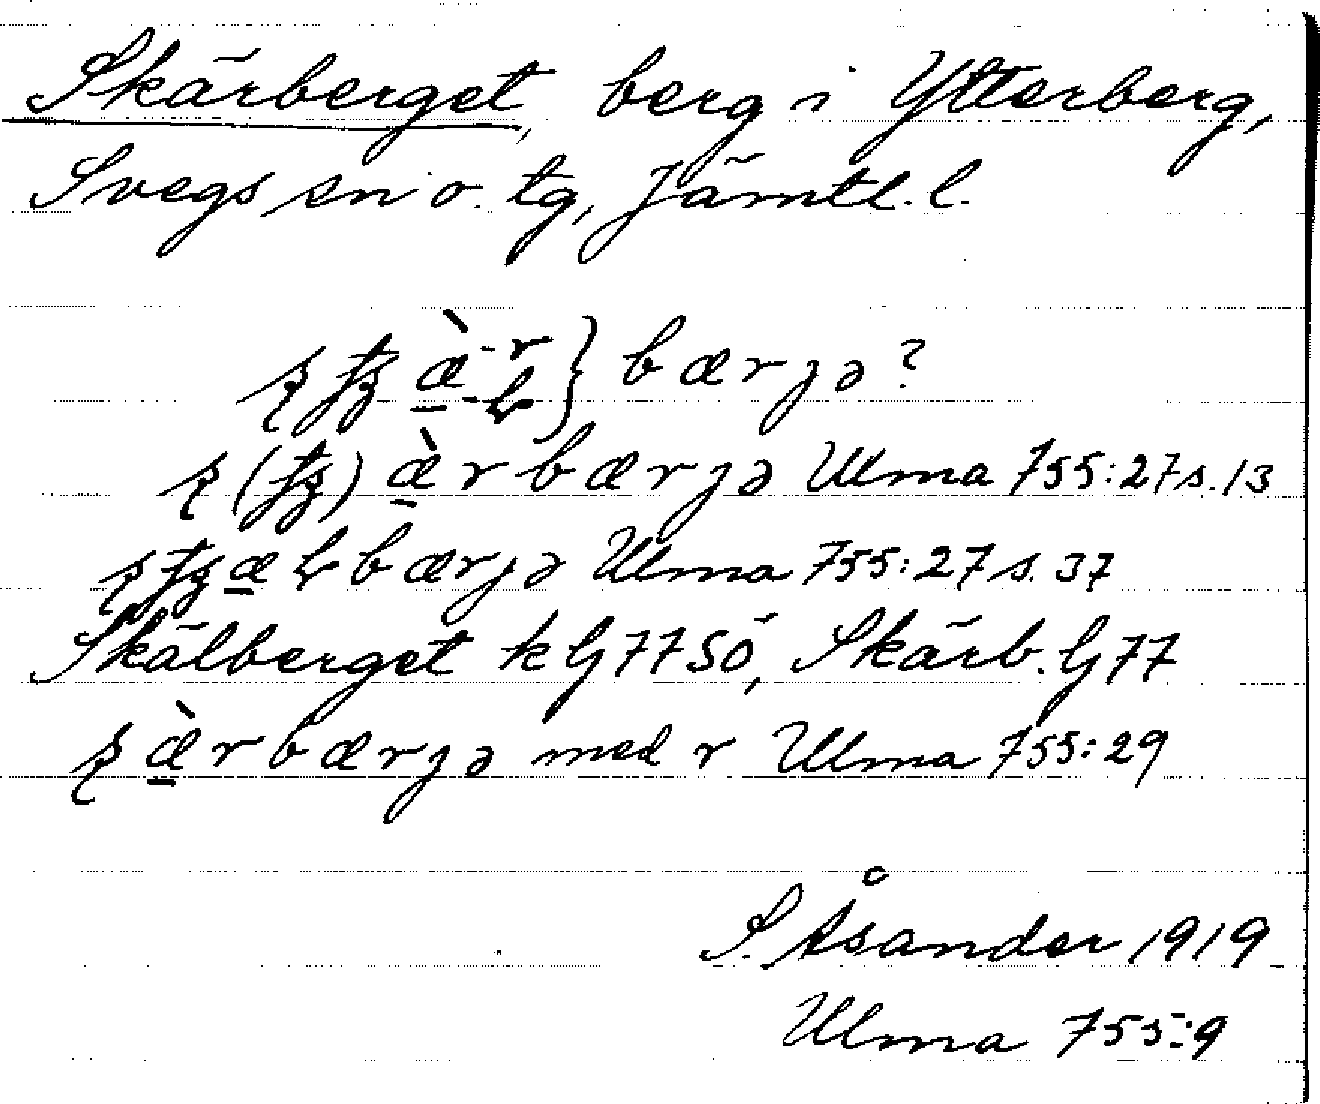 Skärberget, berg i Ytterberg,
Svegs sn o. tg, Jämtl. l.
bærjə?
ærbærjə Ulma 755:27 s. 13
bærjə Ulma 755:27 s. 37
Skälberget k G 77 SÖ, Skärb. G 77
ærbærjə med r Ulma 755:29
S. Åsander 1919
Ulma 755:9